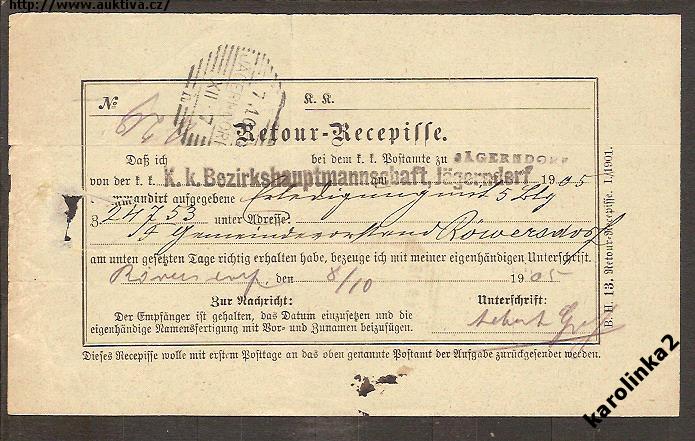 http://www.auktiva.cz/
JÄGERNDORF
7.10.05
XII-7
№
K. K.
Retour-Recepisse.
Daß ich bei dem k. k. Postamte zu JÄGERNDORF
von der k. k. K. k. Bezirkshauptmannschaft, Jägerndorf am 1905
rekommandirt aufgegebene Erledigung mit 5 Blg
3 24753 unter Adresse:
Gemeindevorstand Röwersdorf
am unten gesetzten Tage richtig erhalten habe, bezeuge ich mit meiner eigenhändigen Unterschrift.
Röwersdorf den 8/10 1905
Zur Nachricht: Unterschrift:
Der Empfänger ist gehalten, das Datum einzusetzen und die
eigenhändige Namensfertigung mit Vor- und Zunamen beizufügen.
Dieses Recepisse wolle mit erstem Posttage an das oben genannte Postamt der Aufgabe zurückgesendet werden.
B. H. 13. Retour-Recepisse. I./1901.
karolinka2